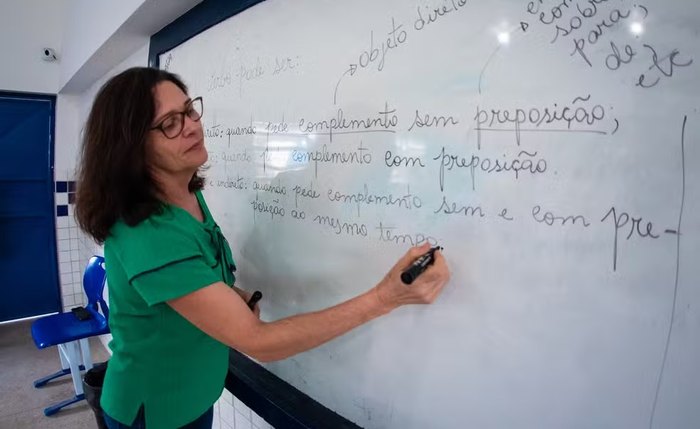 objeto direto
sobre
para,
de etc
verbo pode ser:
quando pede complemento sem preposição;
quando complemento com preposição.
e indireto: quando pede complemento sem e com pre-
posição ao mesmo tempo